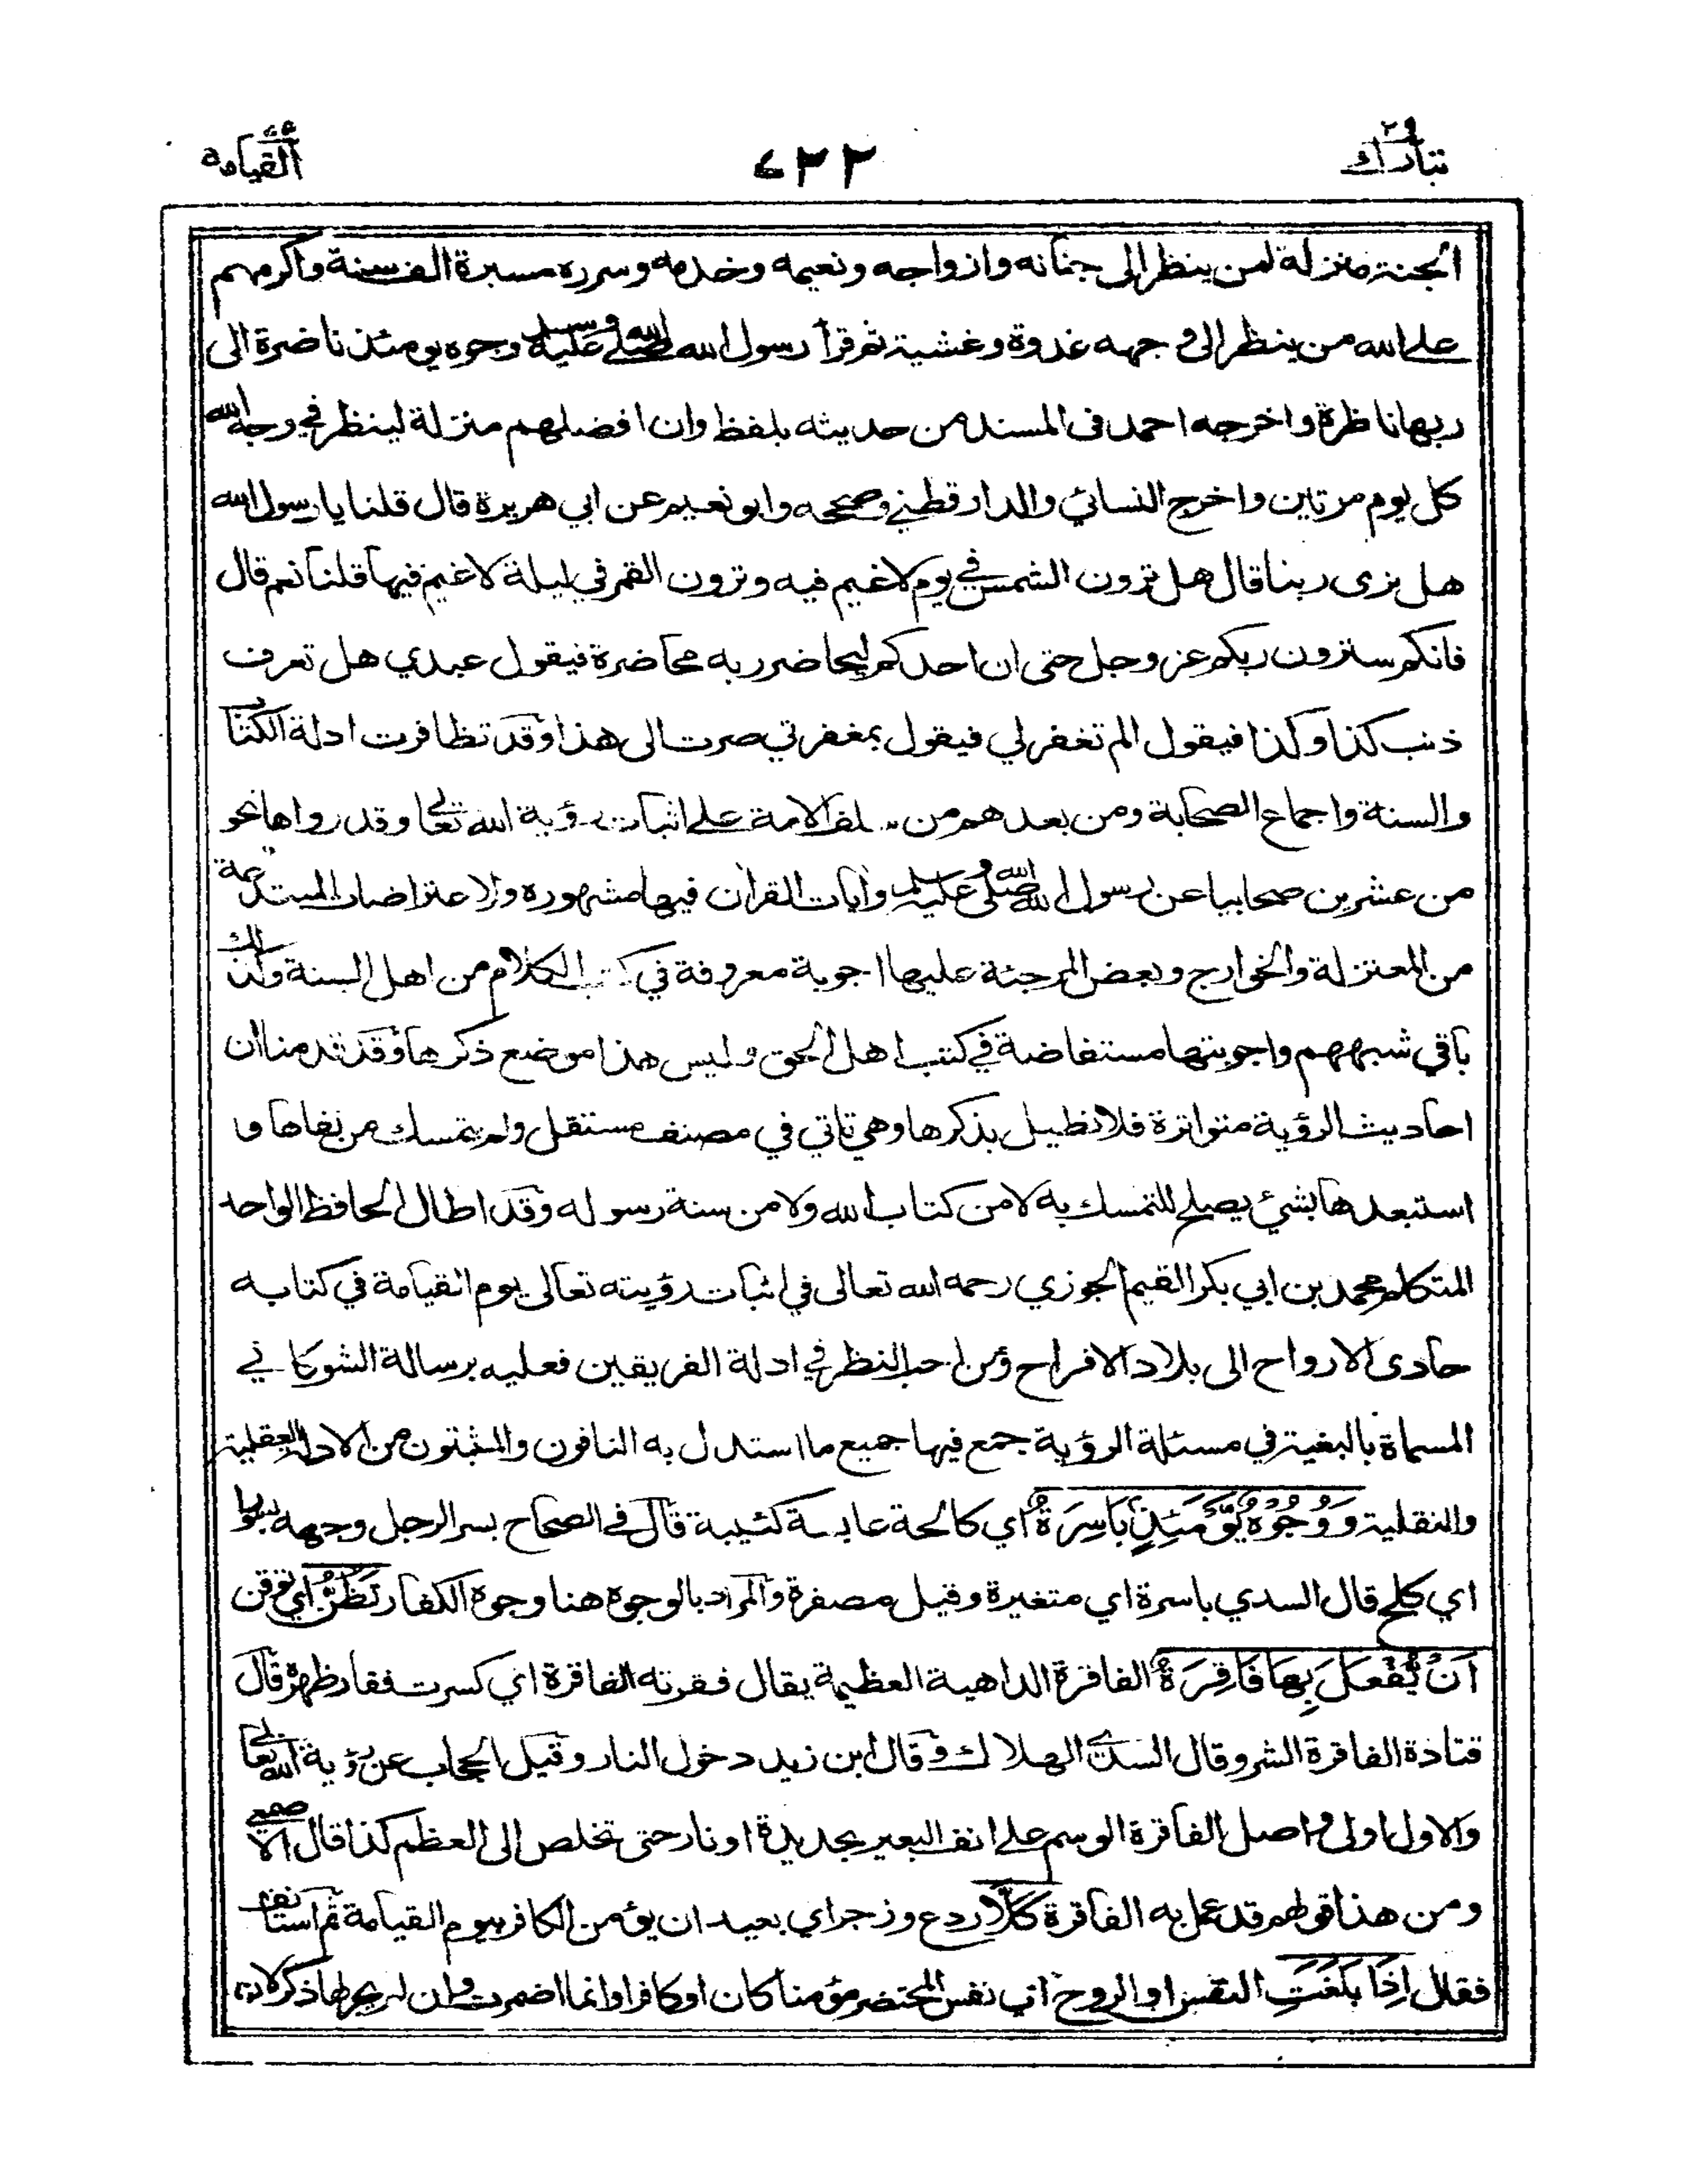 تبارك ٢٩
٤٣٢
القيامة
الجنة منزلة لمن ينظر الى جنانه وازواجه ونعيمه وخدمه وسرره مسيرة الف سنة واكرمهم
على الله من ينظر الى وجهه غدوة وعشية ثم قرأ رسول الله صلى الله عليه وسلم وجوه يومئذ ناضرة الى
ربها ناظرة واخرجه احمد في المسند من حديثه بلفظ وان افضلهم منزلة لينظر في وجه الله
كل يوم مرتين واخرج النسائي والدارقطني وصححه وابو نعيم عن ابي هريرة قال قلنا يا رسول الله
هل نرى ربنا قال هل ترون الشمس في يوم لا غيم فيه وترون القمر في ليلة لا غيم فيها قلنا نعم قال
فانكم سترون ربكم عز وجل حتى ان احدكم ليحاضر ربه محاضرة فيقول عبدي هل تعرف
ذنب كذا وكذا فيقول الم تغفر لي فيقول بمغفرتي صرت الى هذا وقد تظافرت ادلة الكتاب
والسنة واجماع الصحابة ومن بعدهم من سلف الامة على اثبات رؤية الله تعالى وقد رواها نحو
من عشرين صحابيا عن رسول الله صلى الله عليه وسلم وآيات القرآن فيها مشهورة والاعتراضات المبتدعة
من المعتزلة والخوارج وبعض المرجئة عليها اجوبة معروفة في كتب الكلام من اهل السنة وكذلك
باقي شبههم واجوبتها مستفاضة في كتب اهل الحق وليس هذا موضع ذكرها وقد قدمنا ان
احاديث الرؤية متواترة فلا نطيل بذكرها وهي تاتي في مصنف مستقل ولم يتمسك من نفاها و
استبعدها بشئ يصلح للتمسك به لا من كتاب الله ولا من سنة رسوله وقد اطال الحافظ الواحد
المتكلم محمد بن ابي بكر القيم الجوزي رحمه الله تعالى في اثبات رؤيته تعالى يوم القيامة في كتابه
حادى الارواح الى بلاد الافراح ومن احب النظر في ادلة الفريقين فعليه برسالة الشوكاني
المسماة بالبغية في مسئلة الرؤية جمع فيها جميع ما استدل به النافون والمثبتون من الادلة العقلية
والنقلية وَوُجُوهٌ يَوْمَئِذٍ بَاسِرَةٌ اي كالحة عابسة كئيبة قال في الصحاح بسر الرجل وجهه بسورا
اي كلح قال السدي باسرة اي متغيرة وقيل مصفرة والمراد بالوجوه هنا وجوه الكفار تَظُنُّ اي توقن
اَنْ يُّفْعَلَ بِهَا فَاقِرَةٌ الفاقرة الداهية العظيمة يقال فقرته الفاقرة اي كسرت فقار ظهره قال
قتادة الفاقرة الشر وقال السدي الهلاك وقال ابن زيد دخول النار وقيل الحجاب عن رؤية الله تعالى
والاول اولى واصل الفاقرة الوسم على انف البعير بحديدة او نار حتى تخلص الى العظم كذا قال الاصمعي
ومن هذا قولهم قد عمل به الفاقرة كَلَّا ردع وزجر اي بعيد ان يؤمن الكافر بيوم القيامة ثم استانف
فقال اِذَا بَلَغَتِ النفس او الروح اي نفس المحتضر مؤمنا كان او كافرا وانما اضمرت وان لم يجر لها ذكر لان